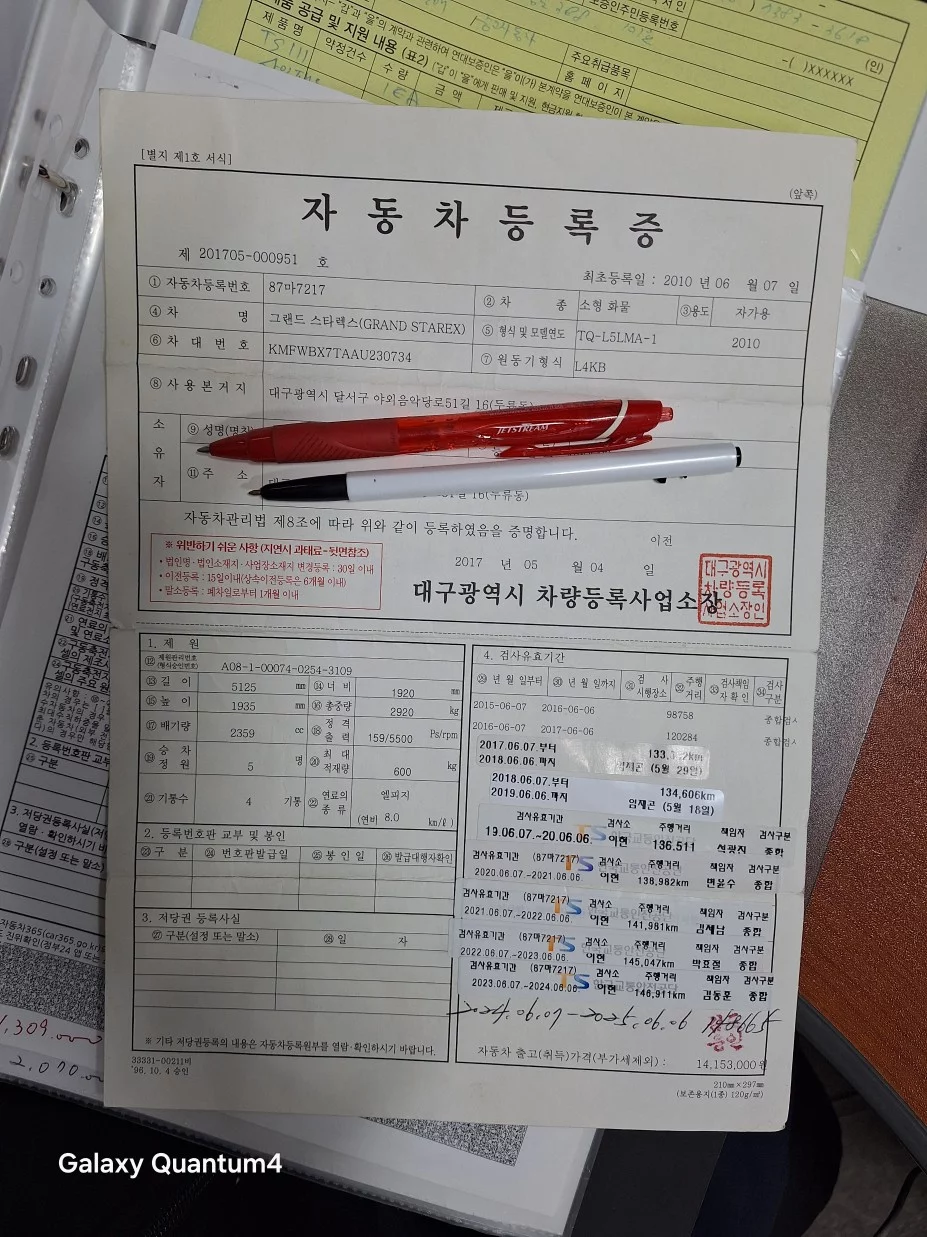 제품 공급 및 지원 내용 (표2)
제 품 명
약정건수
수 량
금 액
주요취급품목
홈 페 이 지
-( )XXXXXX
(인)
[별지 제1호 서식]
(앞쪽)
자 동 차 등 록 증
제 201705-000951 호
최초등록일 : 2010 년 06 월 07 일
① 자동차등록번호 87마7217 ② 차 종 소형 화물 ③용도 자가용
④ 차 명 그랜드 스타렉스(GRAND STAREX) ⑤ 형식 및 모델연도 TQ-L5LMA-1 2010
⑥ 차 대 번 호 KMFWBX7TAAU230734 ⑦ 원동기형식 L4KB
⑧ 사 용 본 거 지 대구광역시 달서구 야외음악당로51길 16(두류동)
소 유 자
⑨ 성명(명칭)
JETSTREAM
⑪ 주 소 16(두류동)
자동차관리법 제8조에 따라 위와 같이 등록하였음을 증명합니다.
이전
2017 년 05 월 04 일
대구광역시 차량등록사업소장
대구광역시
차량등록
사업소장인
※ 위반하기 쉬운 사항 (지연시 과태료-뒷면참조)
• 법인명 · 법인소재지 · 사업장소재지 변경등록 : 30일 이내
• 이전등록 : 15일이내(상속이전등록은 6개월 이내)
• 말소등록 : 폐차일로부터 1개월 이내
1. 제 원
⑫ 제원관리번호 (형식승인번호) A08-1-00074-0254-3109
⑬ 길 이 5125 mm ⑭ 너 비 1920 mm
⑮ 높 이 1935 mm ⑯ 총중량 2920 kg
⑰ 배기량 2359 cc ⑱ 정 격 출 력 159/5500 Ps/rpm
⑲ 승 차 정 원 5 명 ⑳ 최 대 적재량 600 kg
㉑ 기통수 4 기통 ㉒ 연료의 종 류 엘피지
(연비 8.0 km/ℓ)
2. 등록번호판 교부 및 봉인
㉓ 구 분 ㉔ 번호판발급일 ㉕ 봉 인 일 ㉖ 발급대행자확인
3. 저당권 등록사실
㉗ 구분(설정 또는 말소) ㉘ 일 자
※ 기타 저당권등록의 내용은 자동차등록원부를 열람·확인하시기 바랍니다.
33331-00211비
'96. 10. 4 승인
4. 검사유효기간
㉙ 년 월 일부터 ㉚ 년 월 일까지 ㉛ 검 사 시행장소 ㉜ 주행 거리 ㉝ 검사책임 자 확 인 ㉞ 검사 구분
2015-06-07 2016-06-06 98758 종합검사
2016-06-07 2017-06-06 120284 종합검사
2017.06.07.부터
2018.06.06.까지 (5월 29일)
2018.06.07.부터 134,606km
2019.06.06.까지 임채곤 (5월 18일)
검사유효기간 검사소 주행거리 책임자 검사구분
19.06.07.~20.06.06. 이현 136,511 종합
검사유효기간 (87마7217) 검사소 주행거리 책임자 검사구분
2020.06.07.~2021.06.06. 이현 138,982km 변윤수 종합
검사유효기간 (87마7217) 검사소 주행거리 책임자 검사구분
2021.06.07.~2022.06.06. 이현 141,981km 김세남 종합
검사유효기간 (87마7217) 검사소 주행거리 책임자 검사구분
2022.06.07.~2023.06.06. 이현 145,047km 박효철 종합
검사유효기간 (87마7217) 검사소 주행거리 책임자 검사구분
2023.06.07.~2024.06.06 이현 146,911km 김동훈 종합
2024.06.07-2025.06.06
자동차 출고(취득)가격(부가세제외) : 14,153,000원
210㎜×297㎜
(보존용지(1종) 120g/㎡)
2,070.00
Galaxy Quantum4